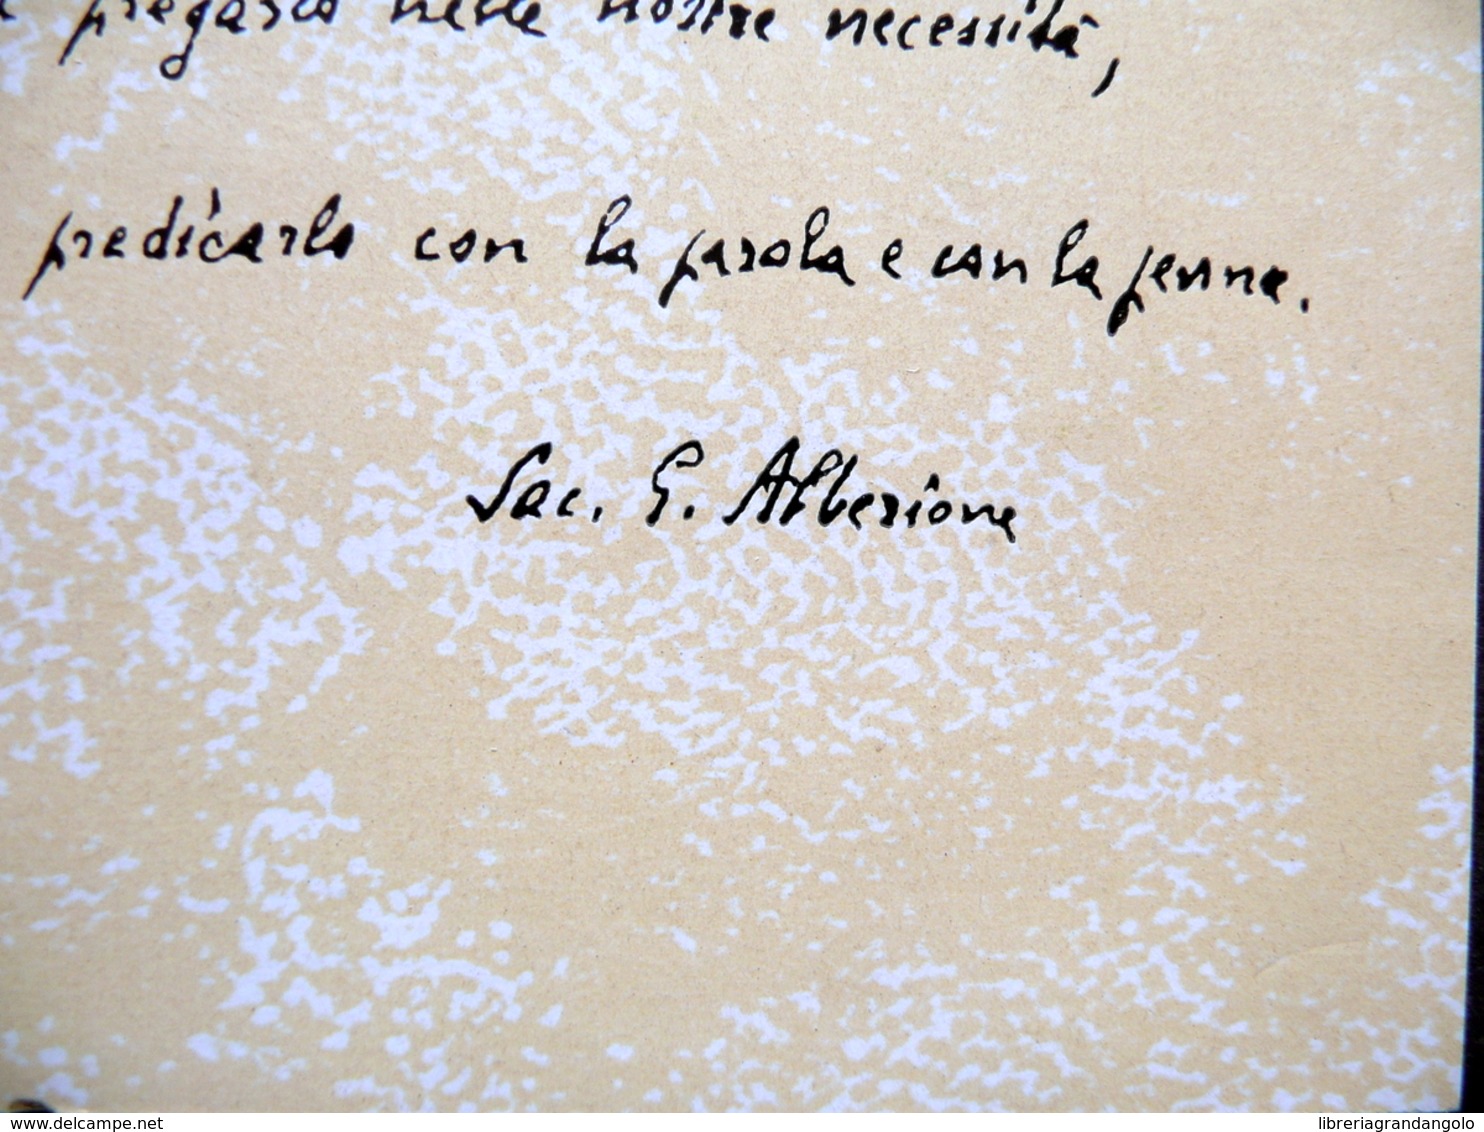 pregarlo nelle nostre necessità,
predicarlo con la parola e con la penna.
Sac. G. Alberione
www.delcampe.net
libreriagrandangolo